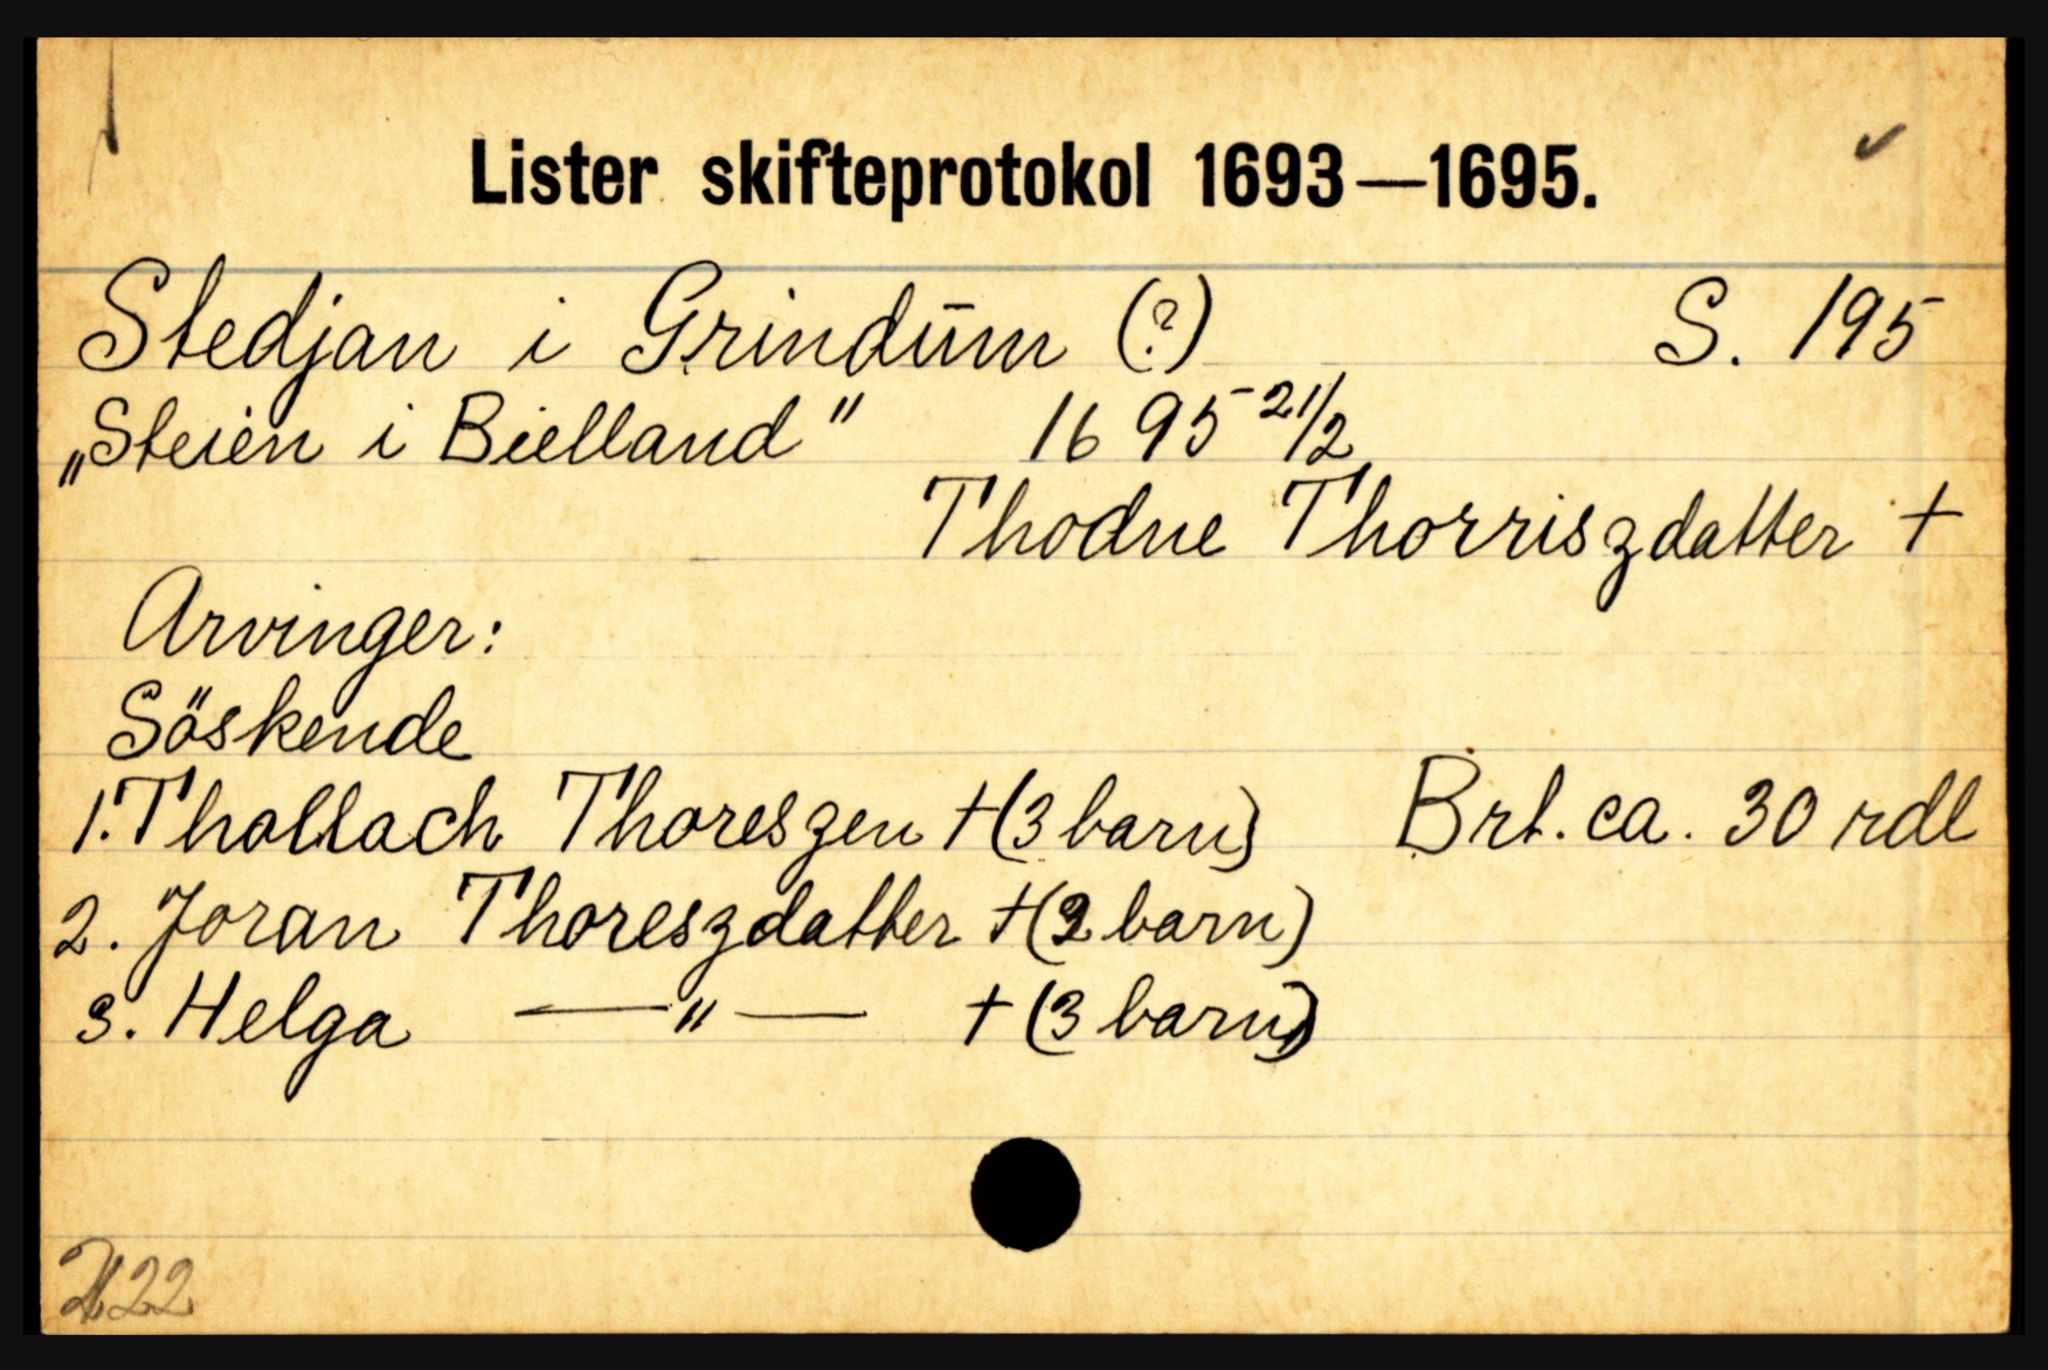 Lister skifteprotokol 1693—1695.
Stedjan i Grindum (?) S. 195
„Steien i Bielland" 1695 21/2
Thodne Thorriszdatter +
Arvinger:
Söskende
1. Thollach Thoreszen + (3 barn) Brt. ca. 30 rdl
2. Joran Thoreszdatter + (2 barn)
3. Helga —"— + (3 barn)